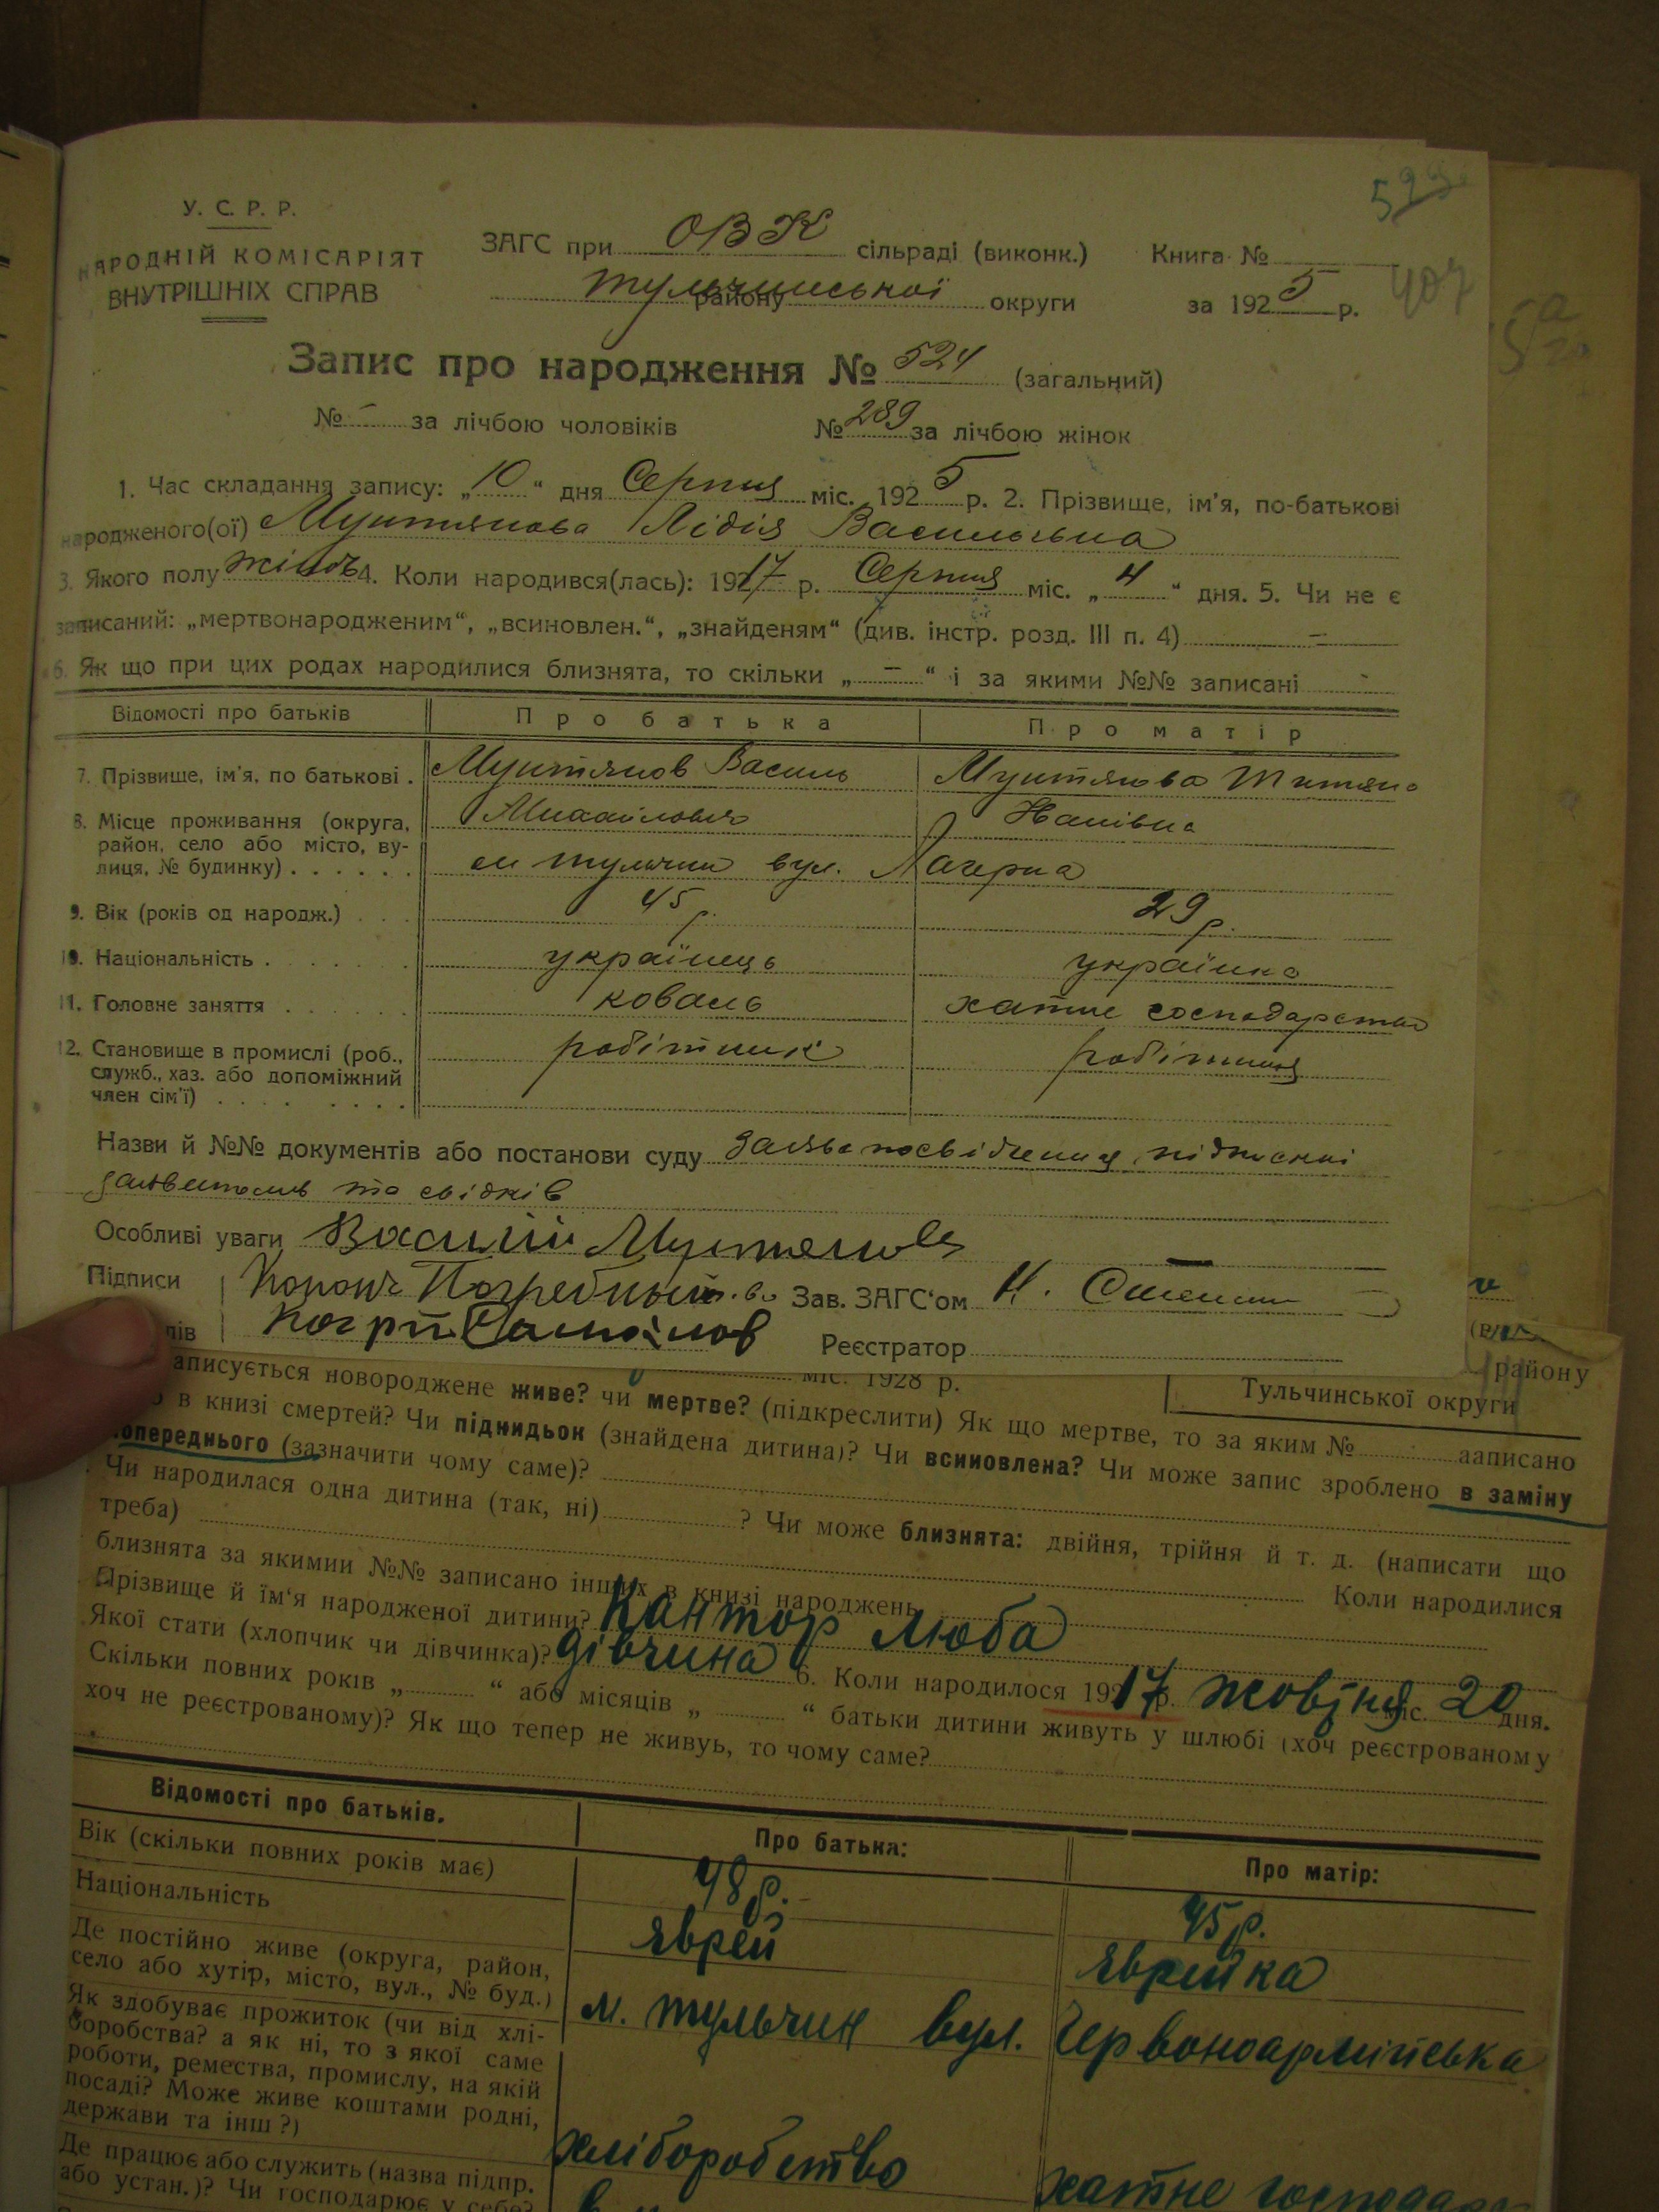 У. С. Р. Р.
НАРОДНІЙ КОМІСАРІЯТ
ВНУТРІШНІХ СПРАВ
ЗАГС при ОВК сільраді (виконк.)
Тульчинської району округи
Книга №
за 1925 р.
407
Запис про народження № 524 (загальний)
№ - за лічбою чоловіків № 289 за лічбою жінок
1. Час складання запису: „10“ дня Серпня міс. 1925 р. 2. Прізвище, ім'я, по-батькові
народженого(ої) Мунтянова Лідія Васильовна
3. Якого полу жіноч 4. Коли народився(лась): 1917 р. Серпня міс. „4“ дня. 5. Чи не є
записаний: „мертвонародженим“, „всиновлен.“, „знайденям“ (див. інстр. розд. III п. 4) —
6. Як що при цих родах народилися близнята, то скільки „—“ і за якими №№ записані -
Відомості про батьків Про батька Про матір
7. Прізвище, ім'я, по батькові . Мунтянов Василь Мунтянова
Михайлович
8. Місце проживання (округа,
район, село або місто, ву-
лиця, № будинку) . . . . . . м Тульчин вул. Лагерна
9. Вік (років од народж.) . . . 45 р. 29 р.
10. Національність . . . . . . українець українка
11. Головне заняття . . . . . . коваль хатне господарство
12. Становище в промислі (роб.,
служб., хаз. або допоміжний
член сім'ї) . . . . . . . . робітник робітниця
Назви й №№ документів або постанови суду посвідчення підпискі
та свідків
Особливі уваги Василій Мунтянов
Підписи Погребный Зав. ЗАГС'ом
Реєстратор
міс. 1928 р.
району
Тульчинської округи
записується новороджене живе? чи мертве? (підкреслити) Як що мертве, то за яким № ааписано
в книзі смертей? Чи піднидьок (знайдена дитина)? Чи всиновлена? Чи може запис зроблено в заміну
попереднього (зазначити чому саме)?
Чи народилася одна дитина (так, ні) ? Чи може близнята: двійня, трійня й т. д. (написати що
треба) Коли народилися
близнята за якимии №№ записано інших в книзі народжень
Прізвище й їм'я народженої дитини? Кантор Люба
Якої стати (хлопчик чи дівчинка)? дівчина 6. Коли народилося 1917 р. жовтня міс. 20 дня.
Скільки повних років „ “ або місяців „ “ батьки дитини живуть у шлюбі (хоч реєстрованому
хоч не реєстрованому)? Як що тепер не живуь, то чому саме?
Відомості про батьків. Про батька: Про матір:
Вік (скільки повних років має) 48 р. 45 р.
Національність яврей яврейка
Де постійно живе (округа, район,
село або хутір, місто, вул., № буд.) м. Тульчин вул. Червоноармійська
Як здобуває прожиток (чи від хлі-
боробства? а як ні, то з якої саме
роботи, ремества, промислу, на якій
посаді? Може живе коштами родні,
держави та інш ?) хліборобство хатне господар
Де працює або служить (назва підпр.
або устан.)? Чи господарює у себе?